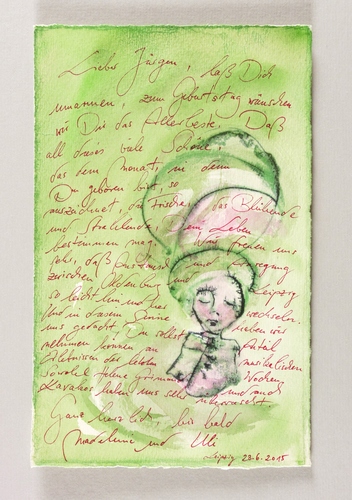 Lieber Jürgen, laß Dich
umarmen, zum Geburtstag wünschen
wir Dir das Allerbeste. Daß
all dieses viele Schöne,
das dem Monat, in dem
Du geboren bist, so
auszeichnet, das Frische, das Blühende
und Strahlende, Dein Leben
bestimmen mag. Wir freuen uns
sehr, daß Austausch und Bewegung
zwischen Oldenburg und Leipzig
so leicht hin und her wechseln.
Und in diesem Sinne haben wir
uns gedacht, Du sollst Anteil
nehmen können an musikalischen
Erlebnissen der letzten Wochen,
sowohl Helene Grimaud und auch
Kavakos haben uns sehr überrascht.
Ganz herzlich, bis bald
Madeleine und Uli
Leipzig 28.6.2015